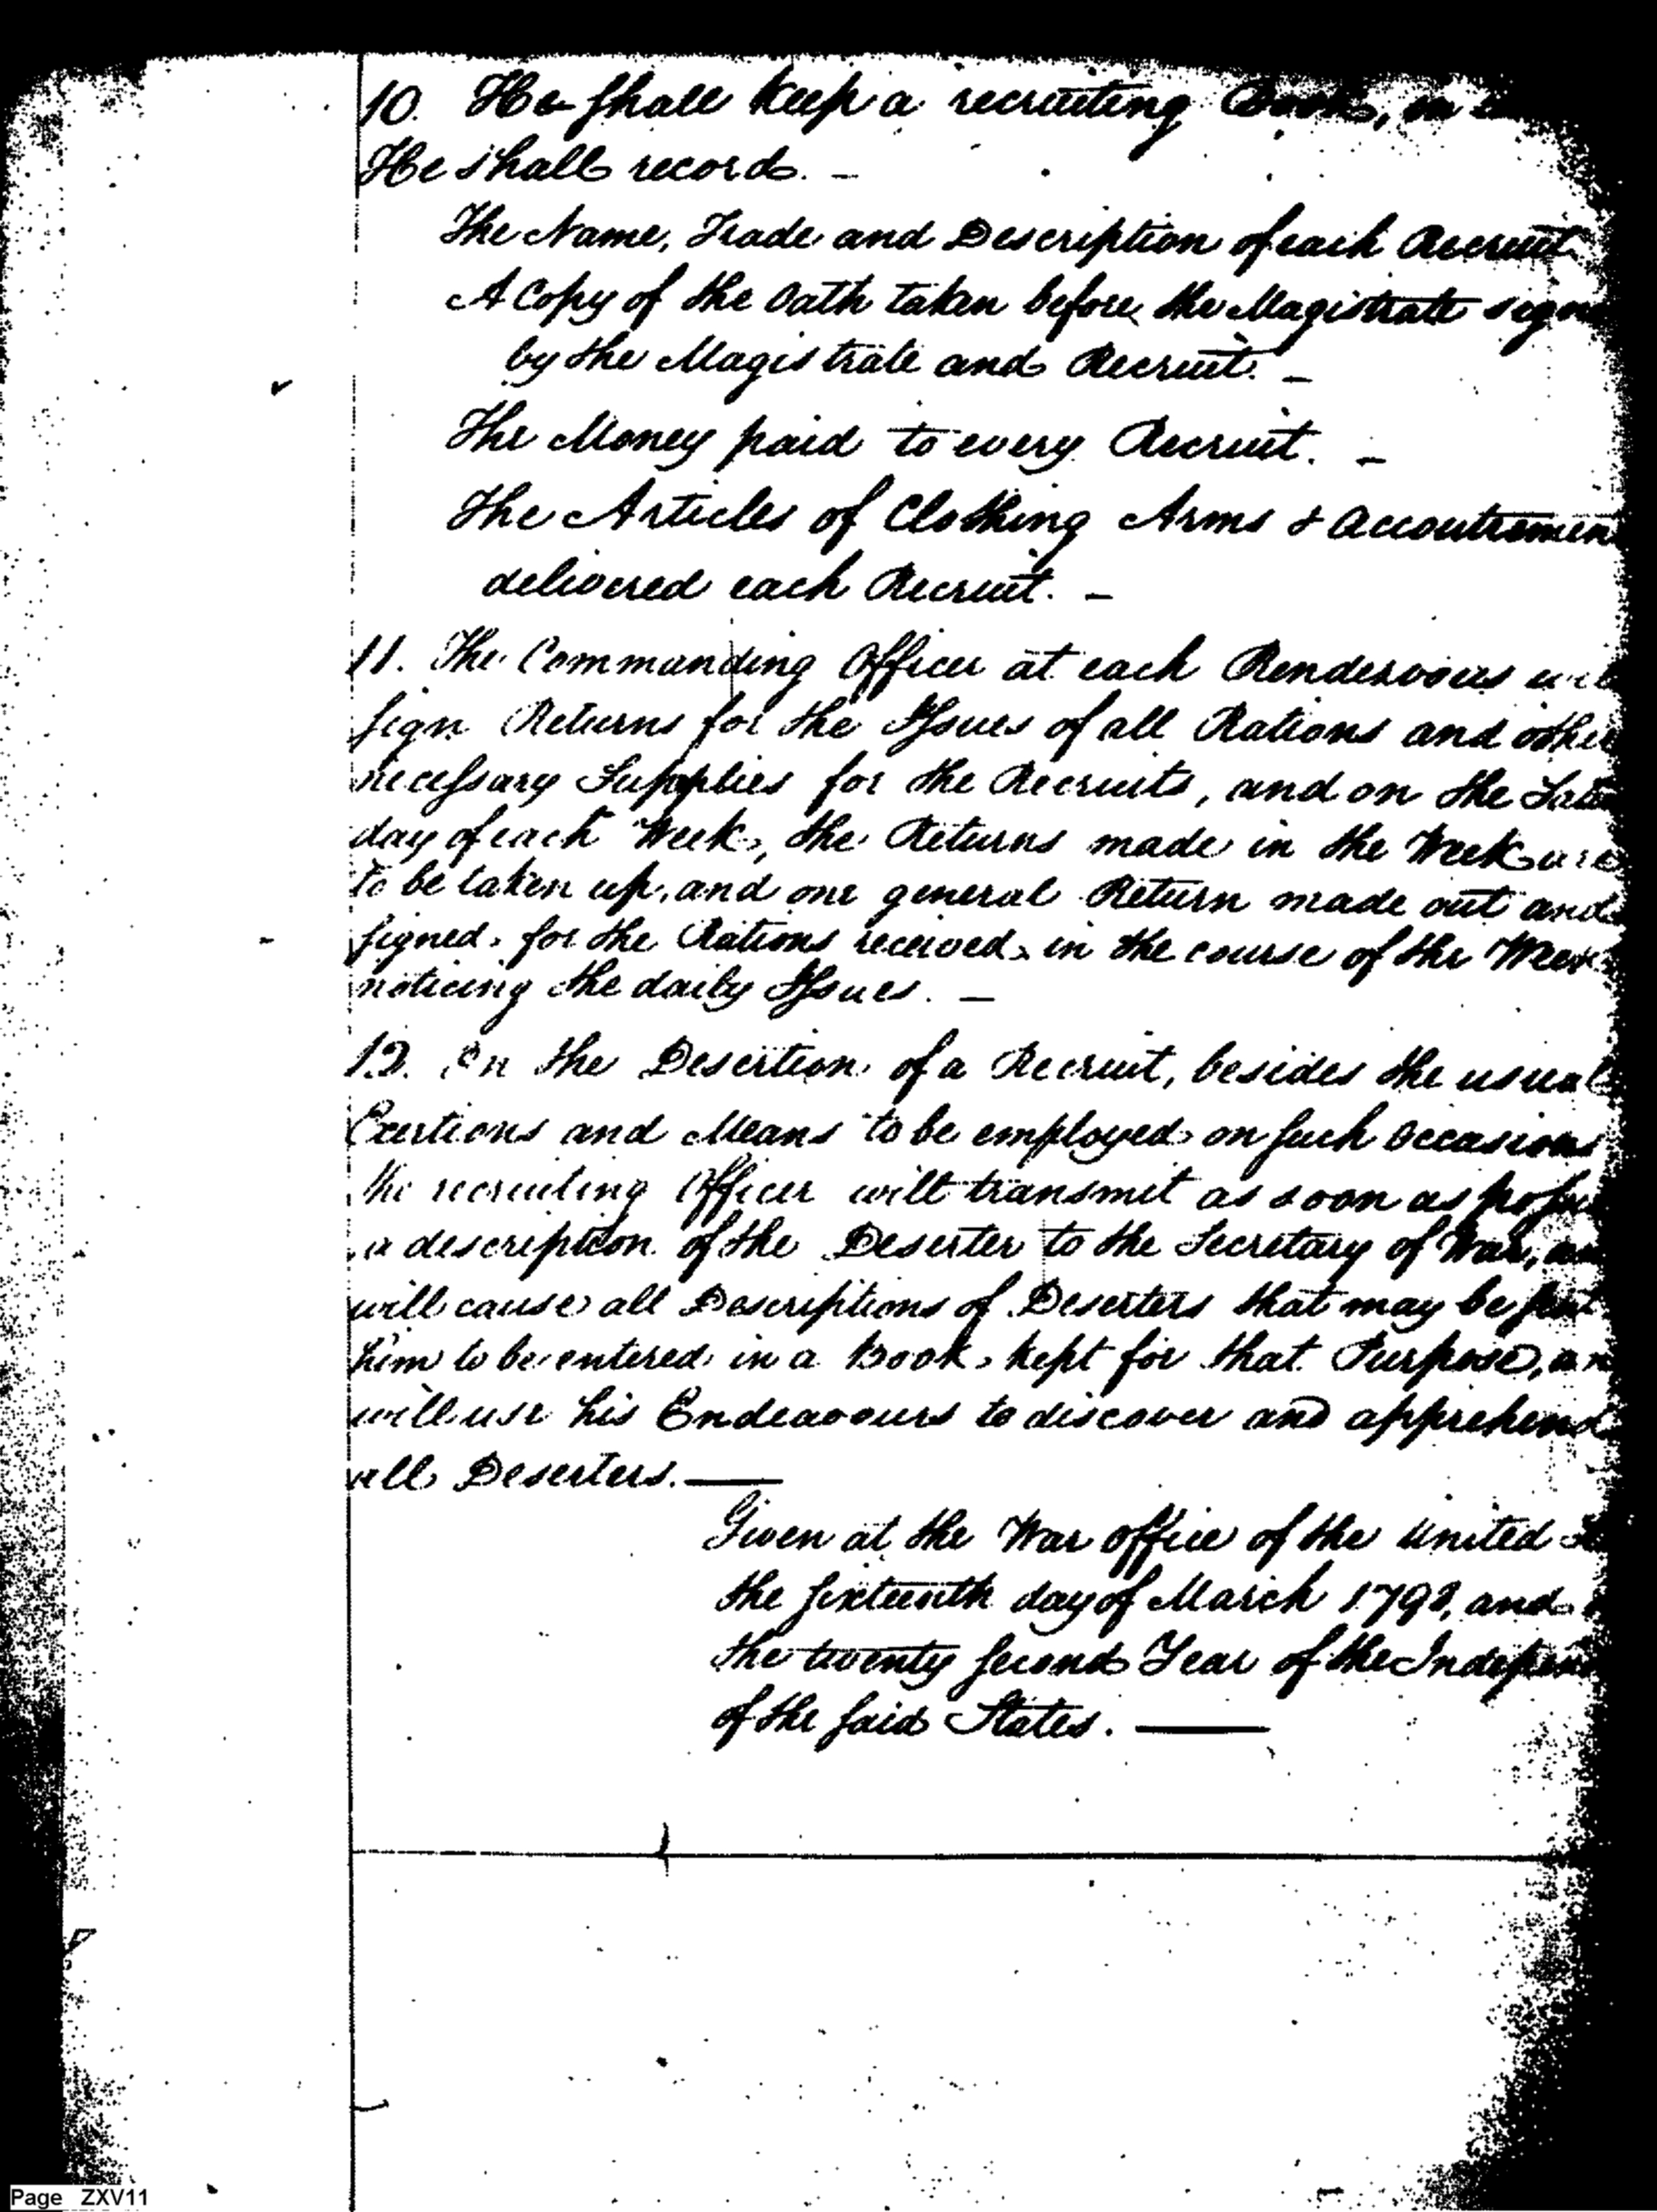 10. He shall keep a recruiting Book, in
He shall record. –
The Name, Trade and Description of each Recruit
A Copy of the Oath taken before the Magistrate sign
by the Magistrate and Recruit. –
The Money paid to every Recruit. –
The Articles of Clothing Arms & Accoutremen
delivered each Recruit. –
11. The Commanding Officer at each Rendezvous will
sign Returns for the Issues of all Rations and other
necessary Supplies for the Recruits, and on the Satur
day of each Week, the Returns made in the Week are
to be taken up, and one general Return made out and
signed, for the Rations received, in the course of the Week
noticing the daily Issues. –
12. On the Desertion of a Recruit, besides the usual
Exertions and Means to be employed on such Occasions
the recruiting Officer will transmit as soon as
a description of the Deserter to the Secretary of War,
will cause all Descriptions of Deserters that may be sent
him to be entered in a Book, kept for that Purpose, an
will use his Endeavours to discover and apprehend
all Deserters. —
Given at the War Office of the United
the sixteenth day of March 1798, and
the twenty second Year of the Indepen
of the said States. —
Page ZXV11